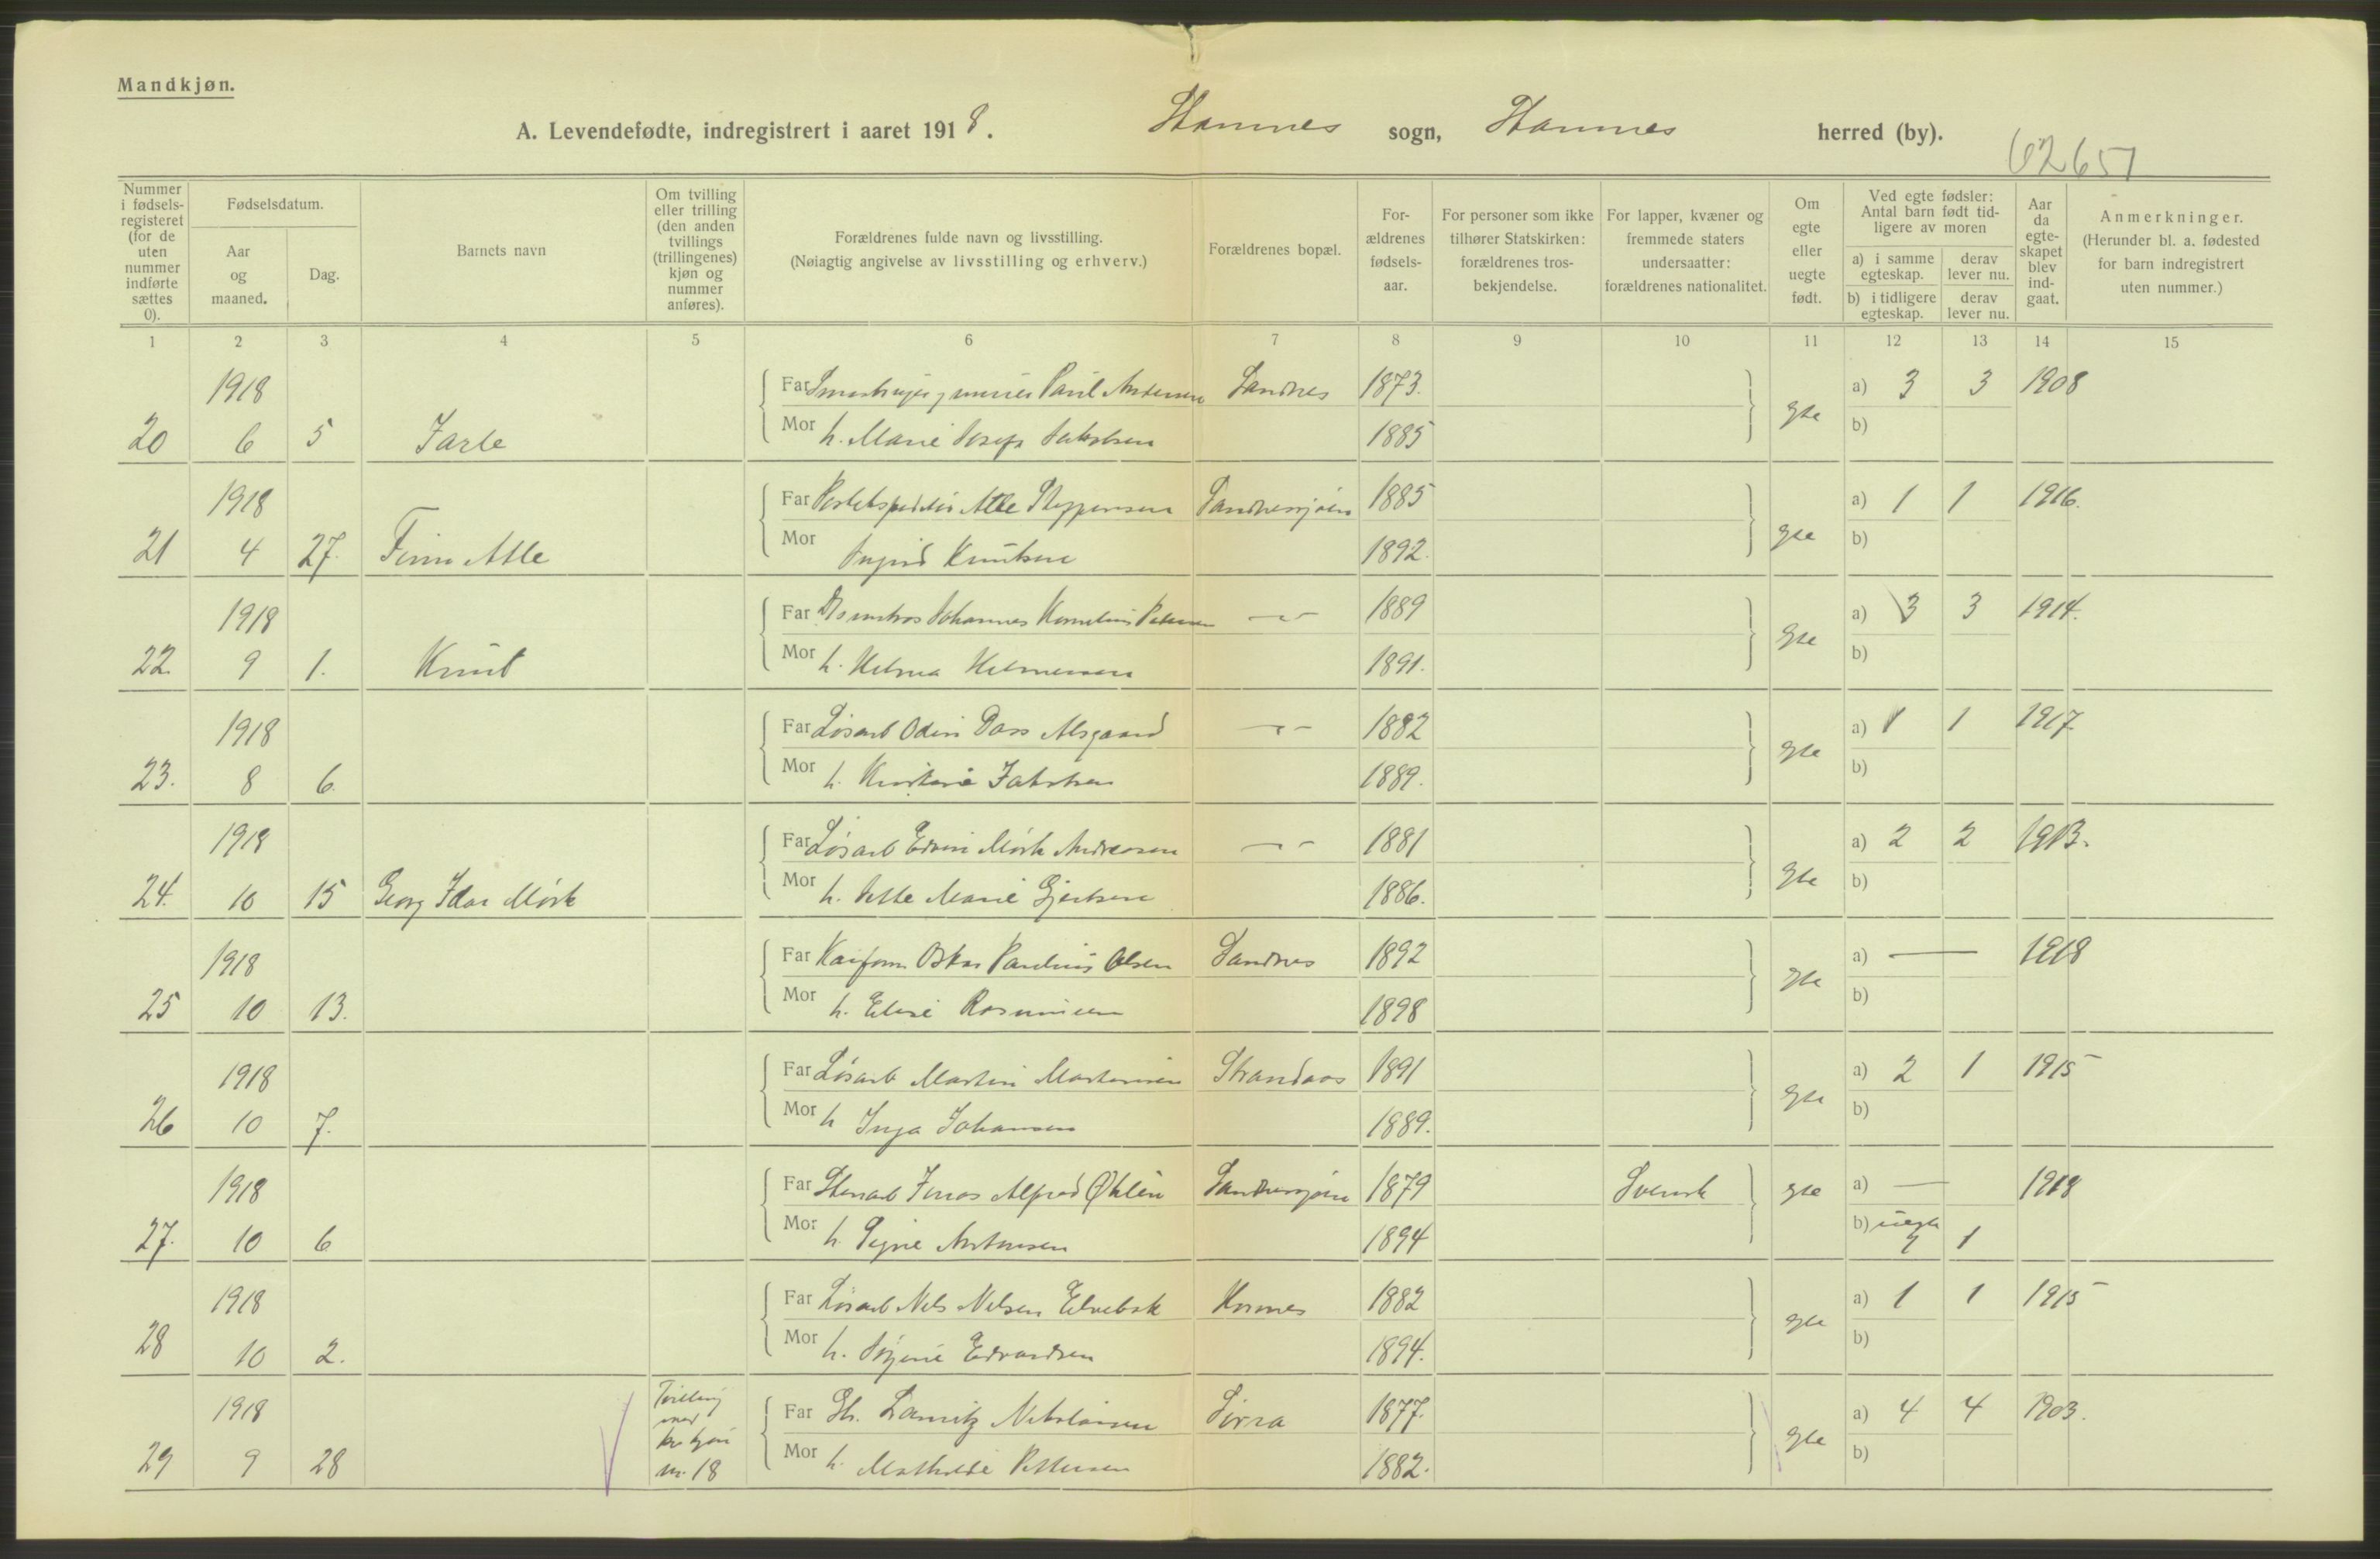 Mandkjøn.
A. Levendefødte, indregistrert i aaret 1918. Stamnes sogn, Stamnes herred (by).
62651
Nummer i fødsels-registeret (for de uten nummer indførte sættes 0).
Fødselsdatum.
Aar og maaned.
Dag.
Barnets navn
Om tvilling eller trilling (den anden tvillings (trillingenes) kjøn og nummer anføres).
Forældrenes fulde navn og livsstilling.
(Nøiagtig angivelse av livsstilling og erhverv.)
Forældrenes bopæl.
For-ældrenes fødsels-aar.
For personer som ikke tilhører Statskirken: forældrenes tros-bekjendelse.
For lapper, kvæner og fremmede staters undersaatter: forældrenes nationalitet.
Om egte eller uegte født.
Ved egte fødsler: Antal barn født tid-ligere av moren
a) i samme egteskap.
derav lever nu.
b) i tidligere egteskap.
derav lever nu.
Aar da egte-skapet blev ind-gaat.
Anmerkninger.
(Herunder bl. a. fødested for barn indregistrert uten nummer.)
1 2 3 4 5 6 7 8 9 10 11 12 13 14 15
1918 Far Paul Andersen Sandnes 1873. a) 3 3 1908
20 6 5 Jarle Mor h. Marie Jakobsen 1885 gte b)
1918 Far Atle Sandnessjøen 1885 a) 1 1 1916.
21 4 27. Finn Atle Mor Ingrid Knutsen 1892. gte b)
1918 Far Johannes Kornelius — 1889 a) 3 3 1914.
22. 9 1. Knut Mor h. Helmersen 1891. gte b)
1918 Far Løsarb Odin Dass Alsgaard — 1882 a) 1 1 1917.
23. 8 6. Mor h. Kristine Jakobsen 1889. gte b)
1918 Far Løsarb Edvin Mørk Andreasen — 1881 a) 2 2 1913.
24. 10 15 Georg Idar Mørk Mor h. Marie Gjertsen 1886. gte b)
1918 Far Oskar Paulius Olsen Sandnes 1892 a) — 1918
25 10 13. Mor h. Elise Rasmussen 1898 gte b)
1918 Far Løsarb Martin Martinsen Strandaas 1891 a) 2 1 1915
26 10 7. Mor h Inga Johansen 1889. gte b)
1918 Far Jonas Alfred Øhlén Sandnessjøen 1879 Svensk gte a) — 1918
27. 10 6 Mor h. Signe Antonsen 1894 b) uegte 1 1
1918 Far Løsarb Nils Nilsen Elvebak Hornes 1882 a) 1 1 1915
28 10 2. Mor h. Edvardsen 1894. gte b)
1918 Tvilling med kv kjøn nr. 18 Far Lauritz Nikolaisen Sørra 1877. a) 4 4 1903.
29 9 28 Mor h. Mathilde Pettersen 1882. gte b)